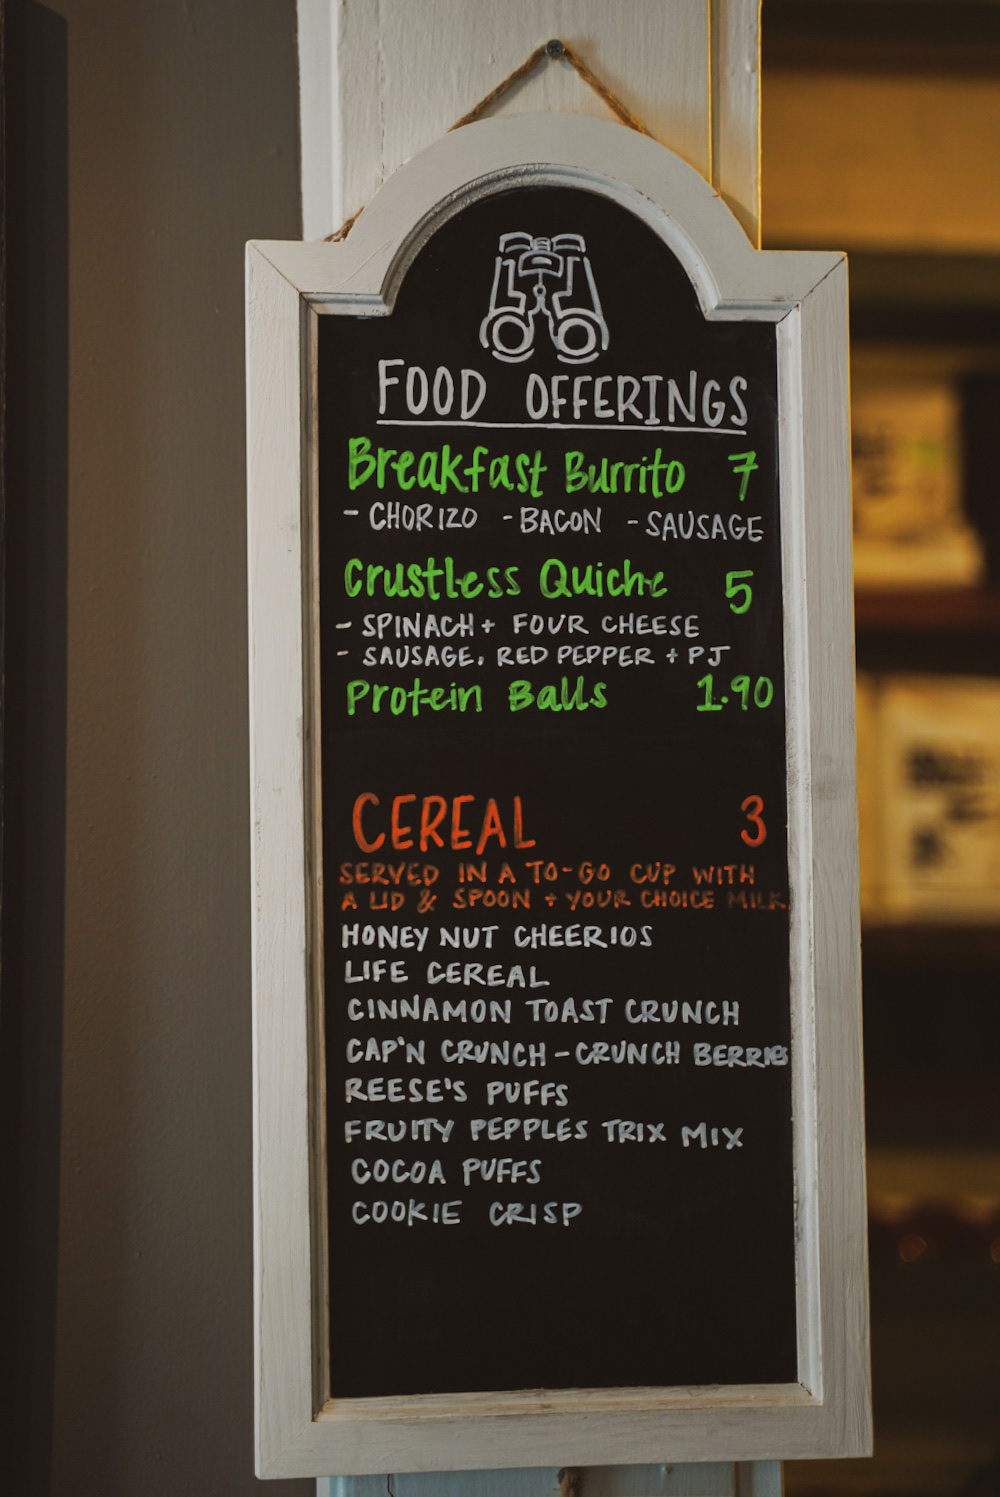 FOOD OFFERINGS
Breakfast Burrito 7
- CHORIZO - BACON - SAUSAGE
Crustless Quiche 5
- SPINACH + FOUR CHEESE
- SAUSAGE, RED PEPPER + PJ
Protein Balls 1.90
CEREAL 3
SERVED IN A TO-GO CUP WITH
A LID & SPOON + YOUR CHOICE MILK.
HONEY NUT CHEERIOS
LIFE CEREAL
CINNAMON TOAST CRUNCH
CAP'N CRUNCH - CRUNCH BERRIES
REESE'S PUFFS
FRUITY PEPPLES TRIX MIX
COCOA PUFFS
COOKIE CRISP